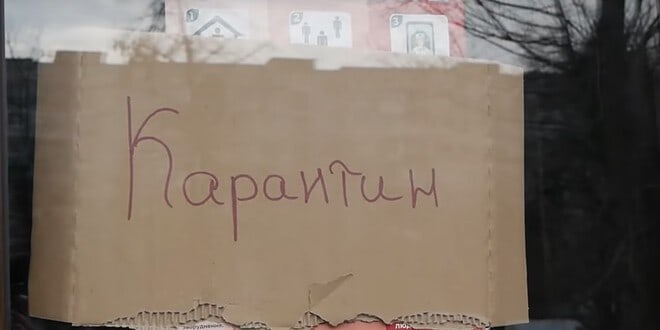 1 2 3
Карантин